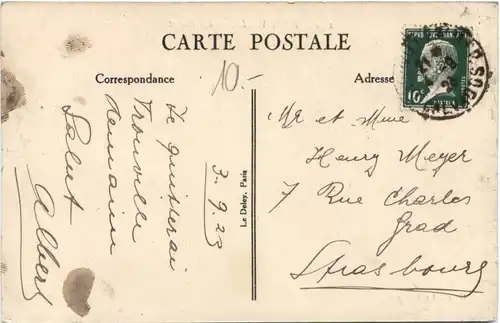 CARTE POSTALE
Correspondance
Adresse
10.-
10c
3.9.23
Je quitterai
Trouville
demain
Salut
Albert
Le Deley, Paris
Mr et Mme
Henry Meyer
7 Rue Charles
Grad
Strasbourg